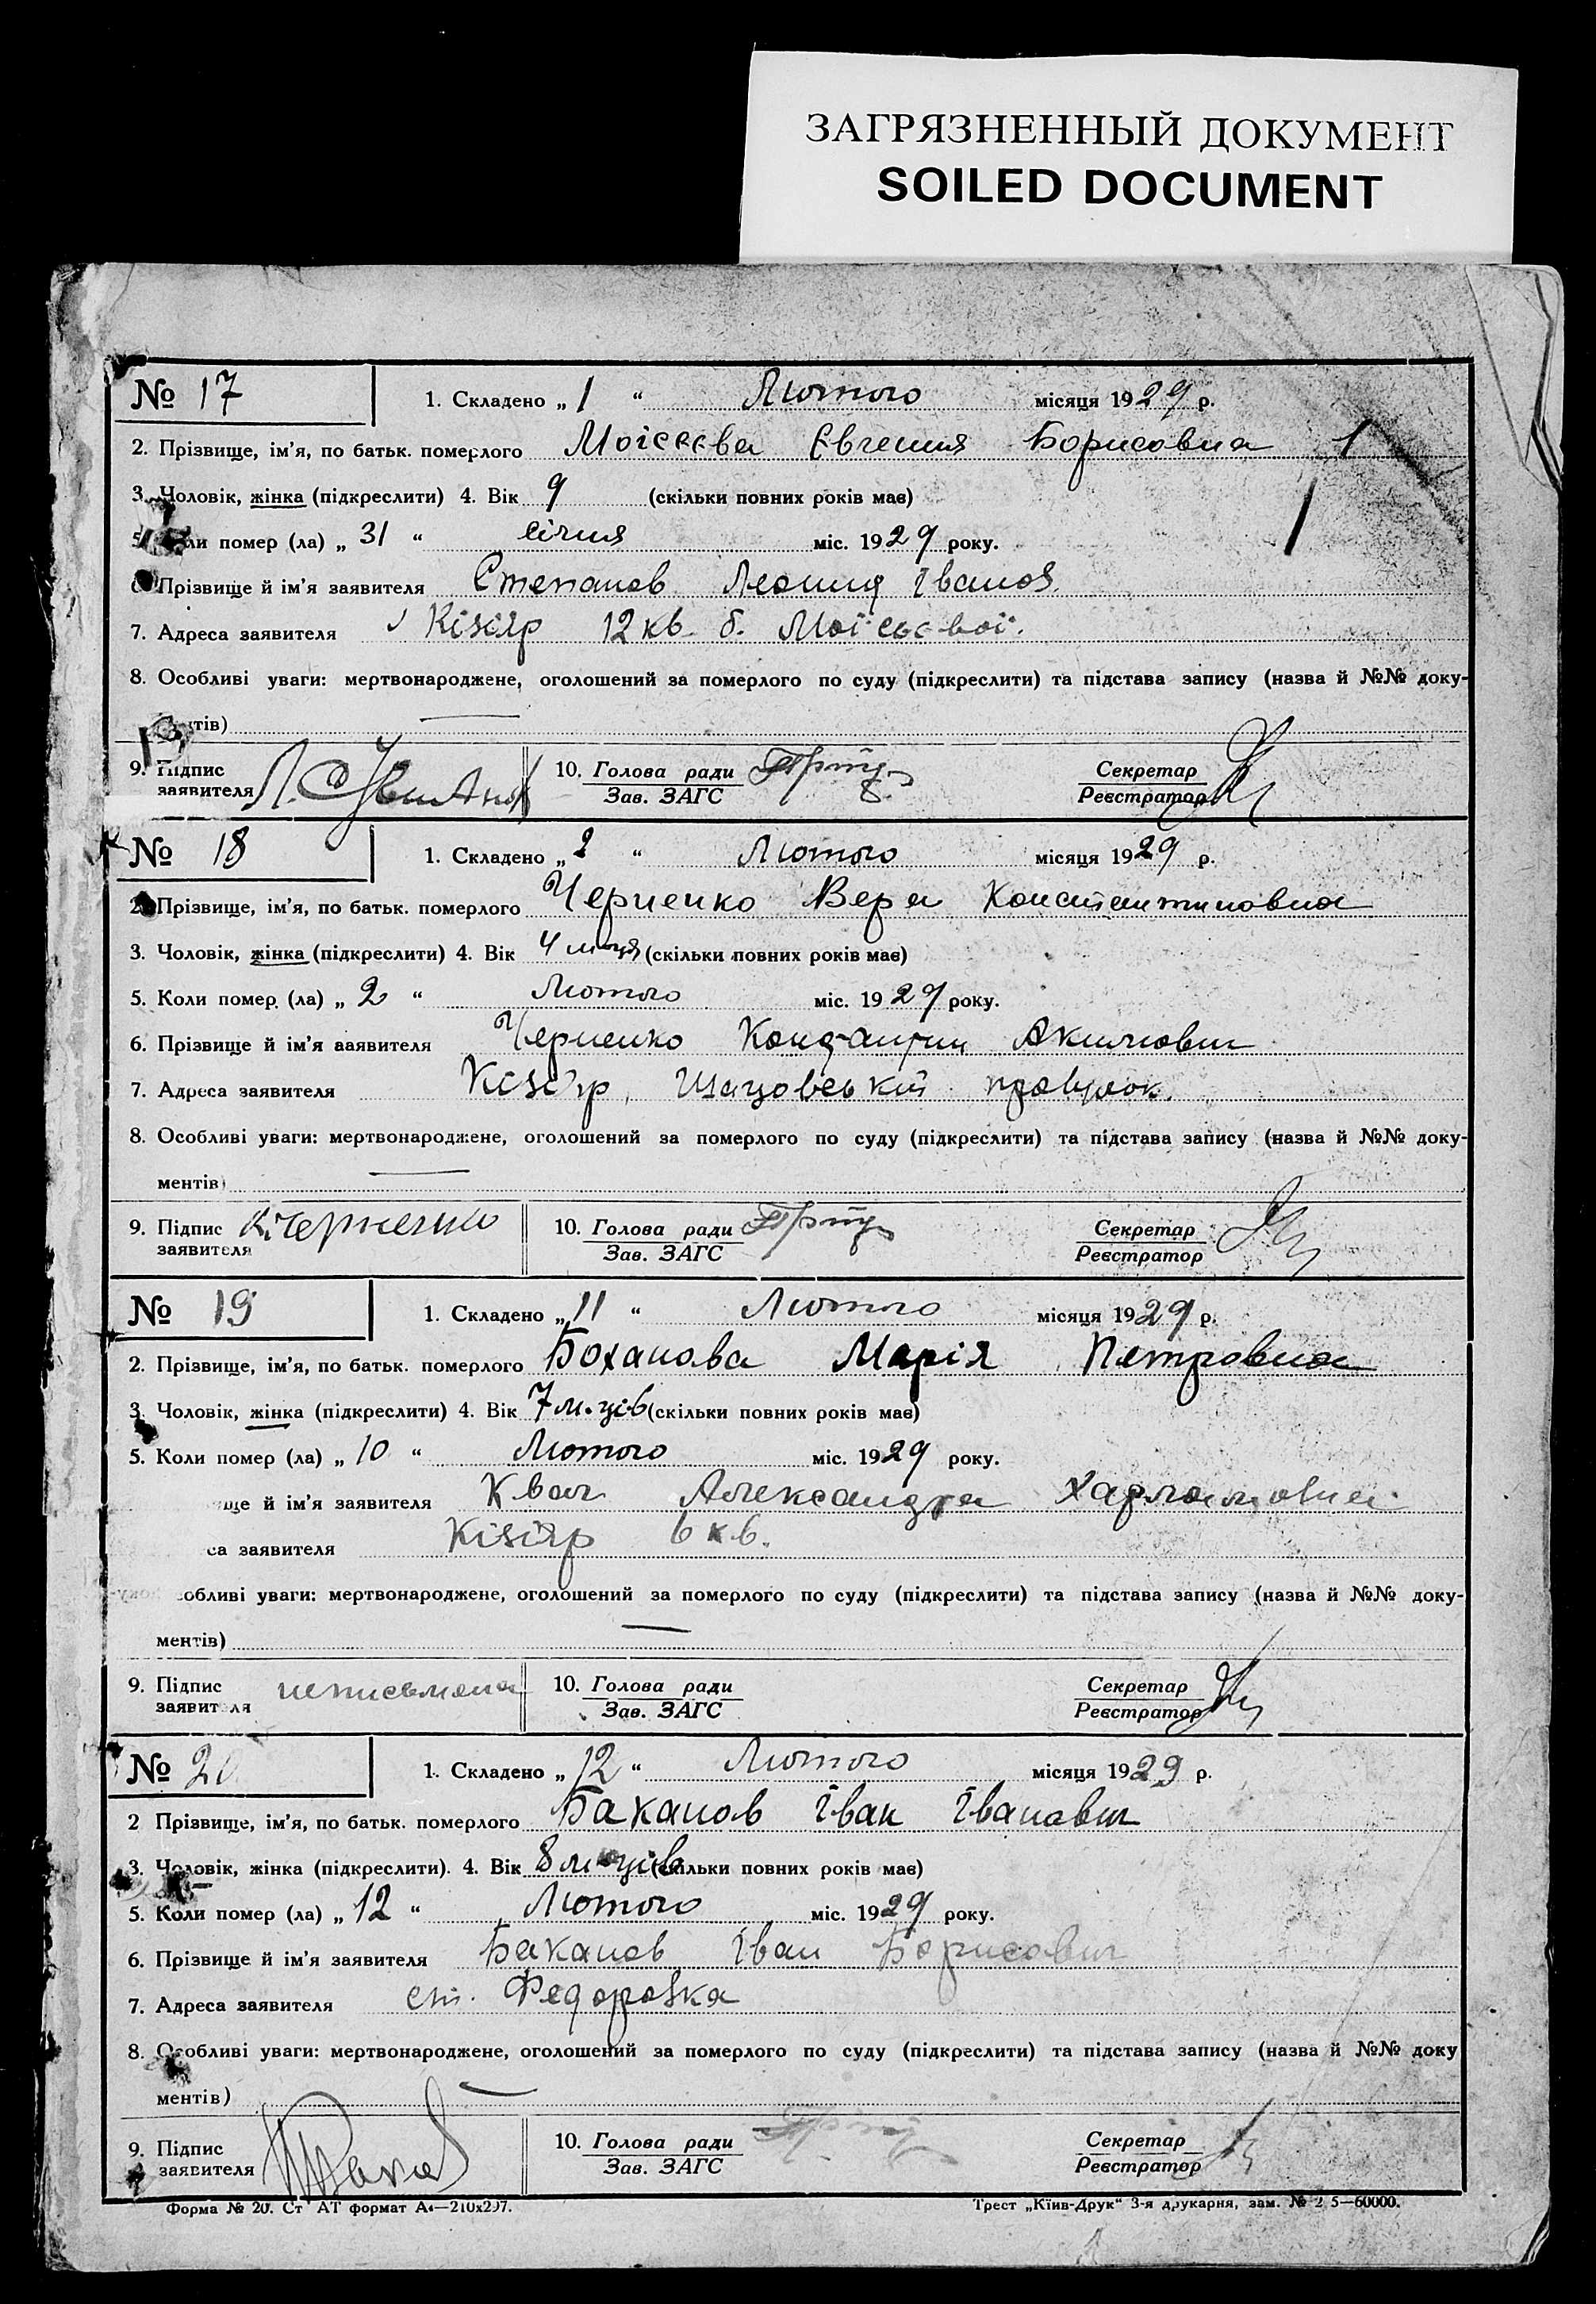 ЗАГРЯЗНЕННЫЙ ДОКУМЕНТ
SOILED DOCUMENT
№ 17 1. Складено „ 1 “ Лютого місяця 1929 р.
2. Прізвище, ім'я, по батьк. померлого Моісеєва Євгения Борисовна 1
3. Чоловік, жінка (підкреслити) 4. Вік 9 (скільки повних років має)
5. Коли помер (ла) „ 31 “ січня міс. 1929 року.
6. Прізвище й ім'я заявителя Степанов Леонид Іванов.
7. Адреса заявителя Кізіяр 12 кв. б. Моїсеєвої.
8. Особливі уваги: мертвонароджене, оголошений за померлого по суду (підкреслити) та підстава запису (назва й №№ доку-
ментів)
9. Підпис 10. Голова ради Секретар
заявителя Зав. ЗАГС Реєстратор
№ 18 1. Складено „ 2 “ Лютого місяця 1929 р.
2. Прізвище, ім'я, по батьк. померлого Черненко Вера Константиновна
3. Чоловік, жінка (підкреслити) 4. Вік 4 м-ця (скільки повних років має)
5. Коли помер (ла) „ 2 “ Лютого міс. 1929 року.
6. Прізвище й ім'я заявителя Черненко Константин Акимович
7. Адреса заявителя Кізіяр, провулок.
8. Особливі уваги: мертвонароджене, оголошений за померлого по суду (підкреслити) та підстава запису (назва й №№ доку-
ментів)
9. Підпис К. Черненко 10. Голова ради Секретар
заявителя Зав. ЗАГС Реєстратор
№ 19 1. Складено „ 11 “ Лютого місяця 1929 р.
2. Прізвище, ім'я, по батьк. померлого Боханова Марія Петровна
3. Чоловік, жінка (підкреслити) 4. Вік 7 м-ців (скільки повних років має)
5. Коли помер (ла) „ 10 “ Лютого міс. 1929 року.
ще й ім'я заявителя Квач Александра Харламовна
са заявителя Кізіяр 6 кв.
собливі уваги: мертвонароджене, оголошений за померлого по суду (підкреслити) та підстава запису (назва й №№ доку-
ментів)
9. Підпис неписьмена 10. Голова ради Секретар
заявителя Зав. ЗАГС Реєстратор
№ 20 1. Складено „ 12 “ Лютого місяця 1929 р.
2 Прізвище, ім'я, по батьк. померлого Баканов Іван Іванович
3. Чоловік, жінка (підкреслити). 4. Вік 8 м-ців (скільки повних років має)
5. Коли помер (ла) „ 12 “ Лютого міс. 1929 року.
6. Прізвище й ім'я заявителя Баканов Іван Борисович
7. Адреса заявителя ст. Федоровка
8. Особливі уваги: мертвонароджене, оголошений за померлого по суду (підкреслити) та підстава запису (назва й №№ доку
ментів)
9. Підпис 10. Голова ради Секретар
заявителя Зав. ЗАГС Реєстратор
Форма № 20. Ст АТ формат А4—210х297. Трест „Київ-Друк“ 3-я друкарня, зам. № 2 5—60000.